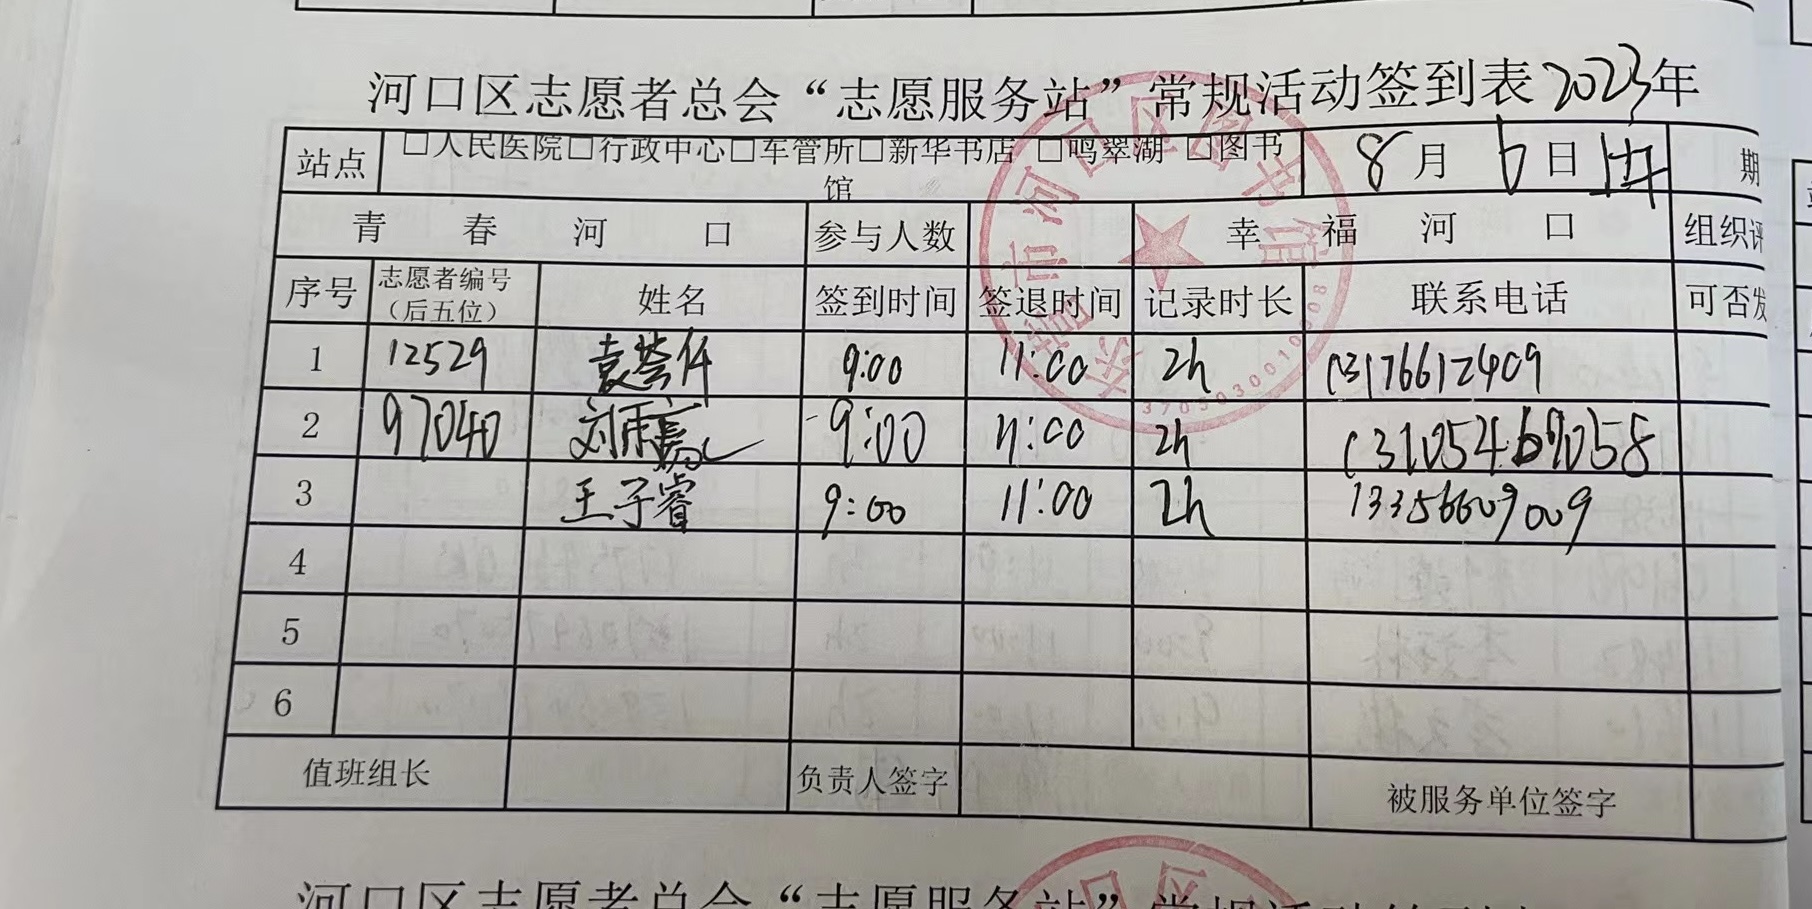 河口区志愿者总会“志愿服务站”常规活动签到表2023年
站点 □人民医院□行政中心□车管所□新华书店 □鸣翠湖 □图书馆 8月6日 期
青春河口 参与人数 幸福河口 组织评
序号 志愿者编号（后五位） 姓名 签到时间 签退时间 记录时长 联系电话 可否发
1 12529 9:00 11:00 2h 13176612409
2 97040 9:00 11:00 2h
3 王子睿 9:00 11:00 2h 13356609009
4
5
6
值班组长 负责人签字 被服务单位签字
河口区志愿者总会“志愿服务站”
东营市河口区图书馆